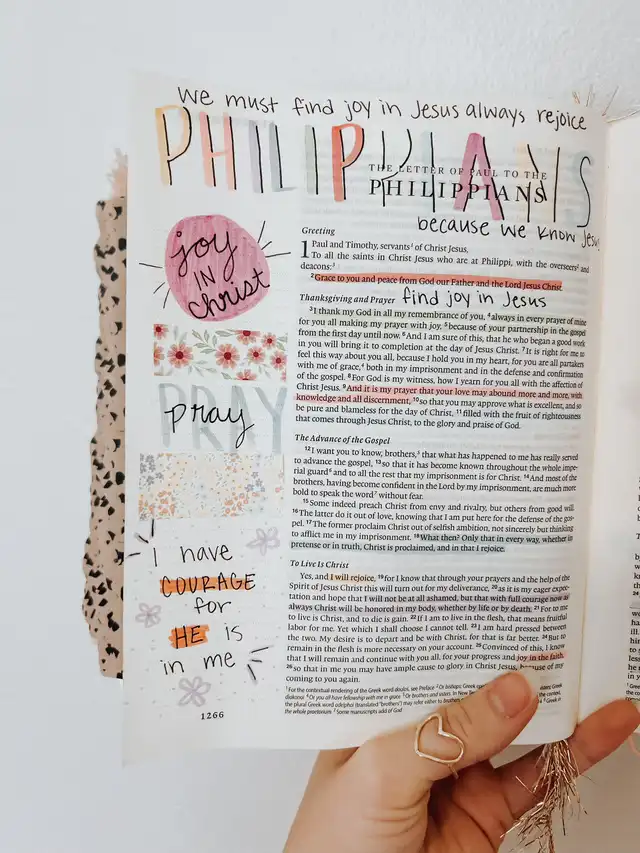 we must find joy in Jesus always rejoice
PHILIPPIANS
THE LETTER OF PAUL TO THE
PHILIPPIANS
because we know Jesus
joy
IN
christ
PRAY
pray
I have
COURAGE
for
HE is
in me
1266
Greeting
1 Paul and Timothy, servants¹ of Christ Jesus,
To all the saints in Christ Jesus who are at Philippi, with the overseers² and
deacons:³
²Grace to you and peace from God our Father and the Lord Jesus Christ.
Thanksgiving and Prayer find joy in Jesus
³I thank my God in all my remembrance of you, ⁴always in every prayer of mine
for you all making my prayer with joy, ⁵because of your partnership in the gospel
from the first day until now. ⁶And I am sure of this, that he who began a good work
in you will bring it to completion at the day of Jesus Christ. ⁷It is right for me to
feel this way about you all, because I hold you in my heart, for you are all partakers
with me of grace,⁴ both in my imprisonment and in the defense and confirmation
of the gospel. ⁸For God is my witness, how I yearn for you all with the affection of
Christ Jesus. ⁹And it is my prayer that your love may abound more and more, with
knowledge and all discernment, ¹⁰so that you may approve what is excellent, and so
be pure and blameless for the day of Christ, ¹¹filled with the fruit of righteousness
that comes through Jesus Christ, to the glory and praise of God.
The Advance of the Gospel
¹²I want you to know, brothers,⁵ that what has happened to me has really served
to advance the gospel, ¹³so that it has become known throughout the whole impe-
rial guard⁶ and to all the rest that my imprisonment is for Christ. ¹⁴And most of the
brothers, having become confident in the Lord by my imprisonment, are much more
bold to speak the word⁷ without fear.
¹⁵Some indeed preach Christ from envy and rivalry, but others from good will.
¹⁶The latter do it out of love, knowing that I am put here for the defense of the gos-
pel. ¹⁷The former proclaim Christ out of selfish ambition, not sincerely but thinking
to afflict me in my imprisonment. ¹⁸What then? Only that in every way, whether in
pretense or in truth, Christ is proclaimed, and in that I rejoice.
To Live Is Christ
Yes, and I will rejoice, ¹⁹for I know that through your prayers and the help of the
Spirit of Jesus Christ this will turn out for my deliverance, ²⁰as it is my eager expec-
tation and hope that I will not be at all ashamed, but that with full courage now as
always Christ will be honored in my body, whether by life or by death. ²¹For to me
to live is Christ, and to die is gain. ²²If I am to live in the flesh, that means fruitful
labor for me. Yet which I shall choose I cannot tell. ²³I am hard pressed between
the two. My desire is to depart and be with Christ, for that is far better. ²⁴But to
remain in the flesh is more necessary on your account. ²⁵Convinced of this, I know
that I will remain and continue with you all, for your progress and joy in the faith,
²⁶so that in me you may have ample cause to glory in Christ Jesus, because of my
coming to you again.
¹For the contextual rendering of the Greek word doulos, see Preface ²Or bishops; Greek
diakonoi ⁴Or you all have fellowship with me in grace ⁵Or brothers and sisters. In New
the plural Greek word adelphoi (translated "brothers") may refer either to brothers
the whole praetorium ⁷Some manuscripts add of God